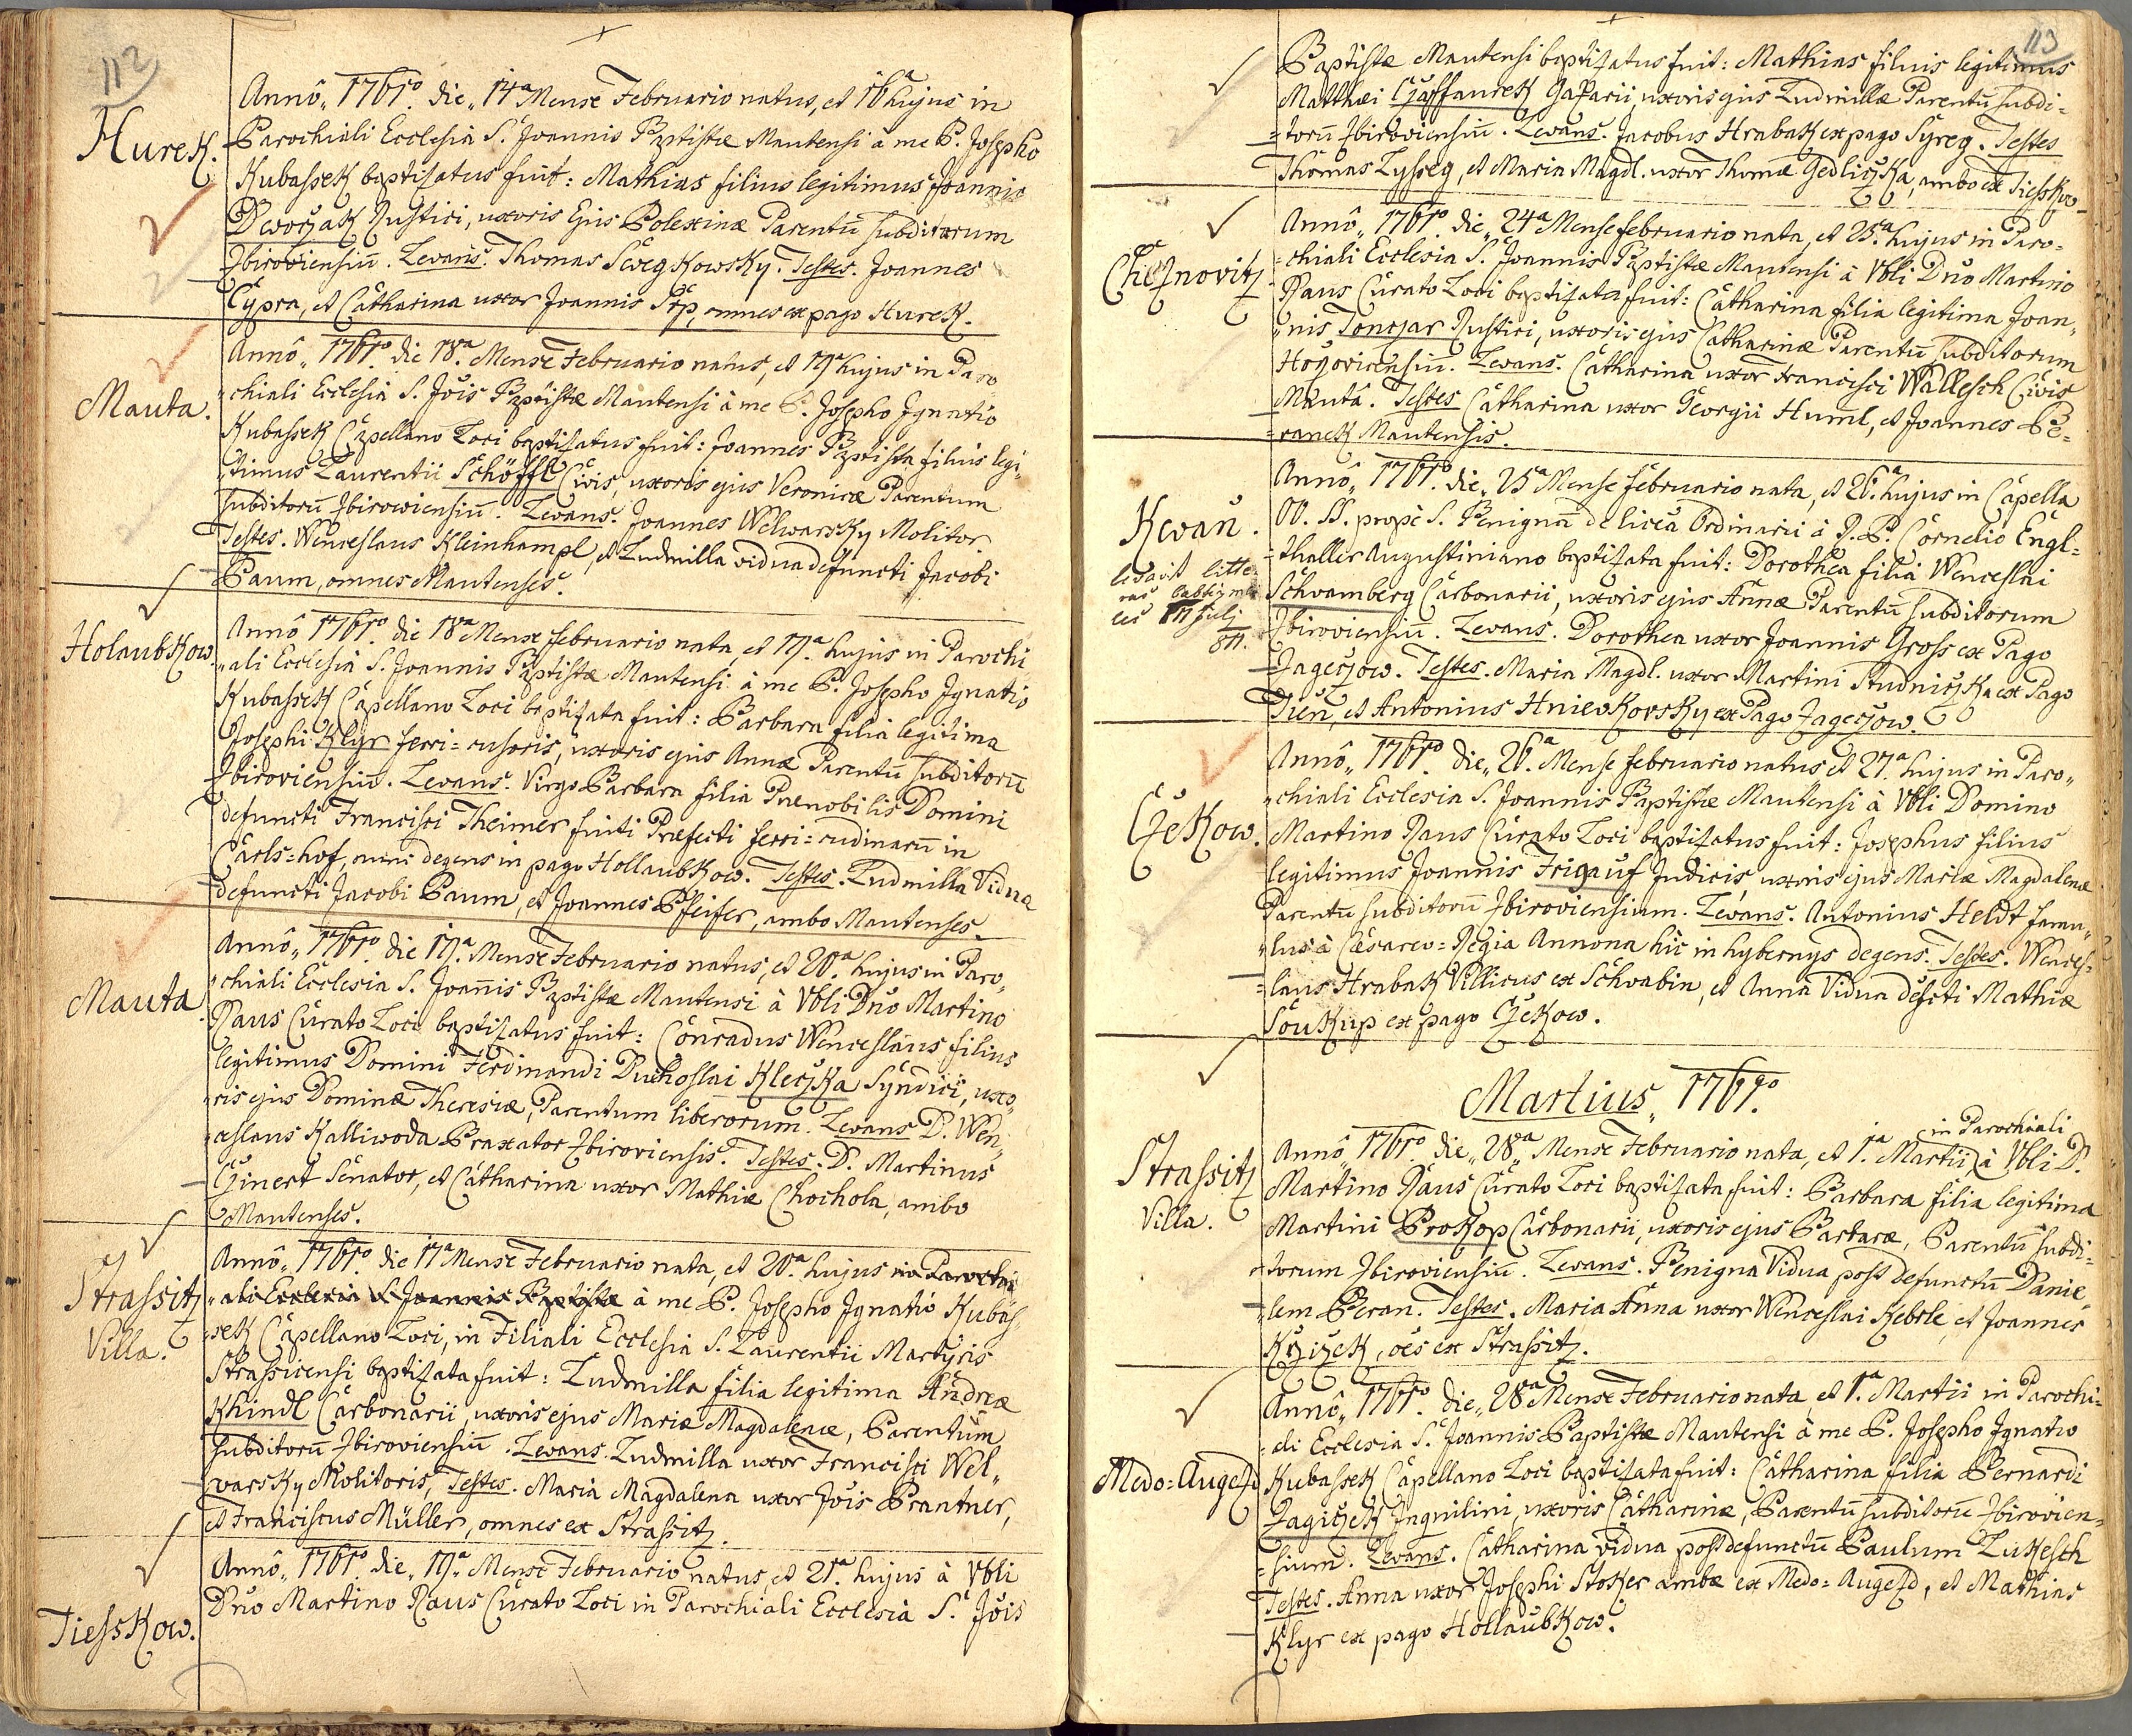 112
Hurek.
Annô„ 1761º. die„ 14ª Mense Februario natus, et 16ª hujus in
Parochiali Ecclesia S. Joannis Bptistæ Mautensi à me P. Josepho
Kubassek baptizatus fuit: Mathias filius legitimus Joannis
Dworzak Rustici, uxoris Ejus Polexinæ Parentū subditorum
Zbiroviensiū. Levans. Thomas Sswegkowsky. Testes. Joannes
Cypra, et Catharina uxor Joannis Srp, omnes ex pago Hurek.
Mauta.
Annô„ 1761º. die 18ª. Mense Februario natus, et 19ª hujus in Paro
„chiali Ecclesia S. Jōis Bptistæ Mautensi à me P. Josepho Ignatio
Kubassek Capellano Loci baptizatus fuit: Joannes Bptista filius legi„
„timus Laurentii Schöffl Civis, uxoris ejus Veronicæ Parentum
subditorū Zbirowiensiū. Levans. Joannes Welwarsky Molitor.
Testes. Wenceslaus Kleinhampl, et Ludmilla vidua defuncti Jacobi
Paum, omnes Mautenses.
Holaubkow.
Annô 1761º. die 18ª Mense februario nata, et 19ª. hujus in Parochi
„ali Ecclesia S. Joannis Bptistæ Mautensi à me P. Josepho Ignatio
Kubassek Capellano Loci baptizata fuit: Barbara filia legitima
Josephi Klyr ferri=cusoris, uxoris ejus Annæ Parentū subditorū
Zbiroviensiū. Levans. Virgo Barbara filia Prænobilis Domini
defuncti Francisci Theimer fuiti Præfecti ferri=rudinarū in
Carls=hof, nunc degens in pago Hollaubkow. Testes. Ludmilla Vidua
defuncti Jacobi Paum, et Joannes Pfeifer, ambo Mautenses.
Mauta
Annô„ 1761º. die 19ª. Mense Februario natus, et 20ª. hujus in Paro„
„chiali Ecclesia S. Joannis Bptistæ Mautensi à Vbli Dño Martino
Raus Curato Loci baptizatus fuit: Conradus Wenceslaus filius
legitimus Domini Ferdinandi Duchoslai Kleczka Syndici, uxo„
„ris ejus Dominæ Theresiæ, Parentum liberorum. Levans D. Wen„
„ceslaus Kalliwoda Braxator Zbiroviensis. Testes. D. Martinus
Czinert Senator, et Catharina uxor Mathiæ Chochola, ambo
Mautenses.
Strassitz
Villa.
Annô„ 1761º. die 17ª Mense Februario nata, et 20ª. hujus in Parochi
„ali Ecclesia S. Joannis Baptistæ à me P. Josepho Ignatio Kubas„
„sek Capellano Loci, in Filiali Ecclesia S. Laurentii Martyris
Strassicensi baptizata fuit: Ludmilla filia legitima Andreæ
Khindl Carbonarii, uxoris ejus Mariæ Magdalenæ, Parentum
subditorū Zbiroviensiū. Levans Ludmilla uxor Francisci Wel„
„warsky Molitoris, Testes. Maria Magdalena uxor Jōis Prantner,
et Franciscus Müller, omnes ex Strassitz.
Tiesskow.
Annô„ 1761º. die„ 19ª. Mense Februario natus, et 21ª. hujus à Vbli
Dño Martino Raus Curato Loci in Parochiali Ecclesia S. Jōis
113
Baptistæ Mautensi baptizatus fuit: Mathias filius legitimus
Matthæi Czaffaurek Gazarii, uxoris ejus Ludmillæ Parentū subdi=
=torū Zbiroviensiū. Levans. Jacobus Hrabak ex pago Syreg. Testes
Thomas Lysseg, et Maria Magdl. uxor Thomæ Gedliczka, ambo ex Tiesskow
Cheznovitz
Annô„ 1761º. die„ 24ª Mense februario nata, et 25ª. hujus in Paro=
=chiali Ecclesia S. Joannis Bptistæ Mautensi à Vbli Dño Martino
Raus Curato Loci baptizata fuit: Catharina filia legitima Joan„
„nis Tonczar Rustici, uxoris ejus Catharinæ Parentū subditorum
Hořovicensiū. Levans. Catharina uxor Francisci Wallesch Civis
Mauta. Testes Catharina uxor Georgii Huml, et Joannes Be=
=ranek Mautensis.
Kwaň.
levavit litte
ras babtisma
les 19 julj
811.
Annô„ 1761º. die„ 25ª Mense februario nata, et 26ª. hujus in Capella
OO. SS. propè S. Benignā de licea Ordinarii à R. P. Cornelio Engl=
=thaller Augustiniano baptizata fuit: Dorothea filia Wenceslai
Schwamberg Carbonarii, uxoris ejus Annæ Parentū subditorum
Zbiroviensiū. Levans. Dorothea uxor Joannis Gross ex Pago
Zageczow. Testes. Maria Magdl. uxor Martini Studniczka ex Pago
Tieň, et Antonius Hniewkowsky ex Pago Zageczow.
Czekow.
Annô„ 1761º. die„ 26ª. Mense februario natus et 27ª. hujus in Paro„
„chiali Ecclesia S. Joannis Baptistæ Mautensi à Vbli Domino
Martino Raus Curato Loci baptizatus fuit: Josephus filius
legitimus Joannis Frigauf Judicis, uxoris ejus Mariæ Magdalenæ
Parentū subditorū Zbiroviensium. Levans. Antonius Heldt famu„
„lus à Cæsareo=Regia Annona hic in hybernys degens. Testes. Wences=
=laus Hrabak Villicus ex Schwabin, et Anna Vidua defcti Mathiæ
Soukup ex pago Czekow.
Martius„ 1761º.
Strassitz
Villa.
in Parochiali
Annô„ 1761º. die„ 28ª„ Mense Februario nata, et 1ª. Martii à Vbli D.
Martino Raus Curato Loci baptizata fuit: Barbara filia legitima
Martini Prokop Carbonarii, uxoris ejus Barbaræ, Parentū subdi=
=torum Zbiroviensiū. Levans. Benigna Vidua post defunctū Danie„
„lem Beran. Testes. Maria Anna uxor Wenceslai Kebrle, et Joannes
Krziczek, oēs ex Strassitz.
Medo=Augezd
Annô„ 1761º. die„ 28ª Mense Februario nata, et 1ª. Martii in Parochi=
=ali Ecclesia S. Joannis Baptistæ Mautensi à me P. Josepho Ignatio
Kubassek Capellano Loci baptizata fuit: Catharina filia Bernardi
Zagiczek Inquilini, uxoris Catharinæ, Parentū subditorū Zbirovien=
=sium. Levans. Catharina vidua post defunctū Paulum Lukesch
Testes. Anna uxor Josephi Stoker ambæ ex Medo=Augezd, et Mathias
Klyr ex pago Hollaubkow.